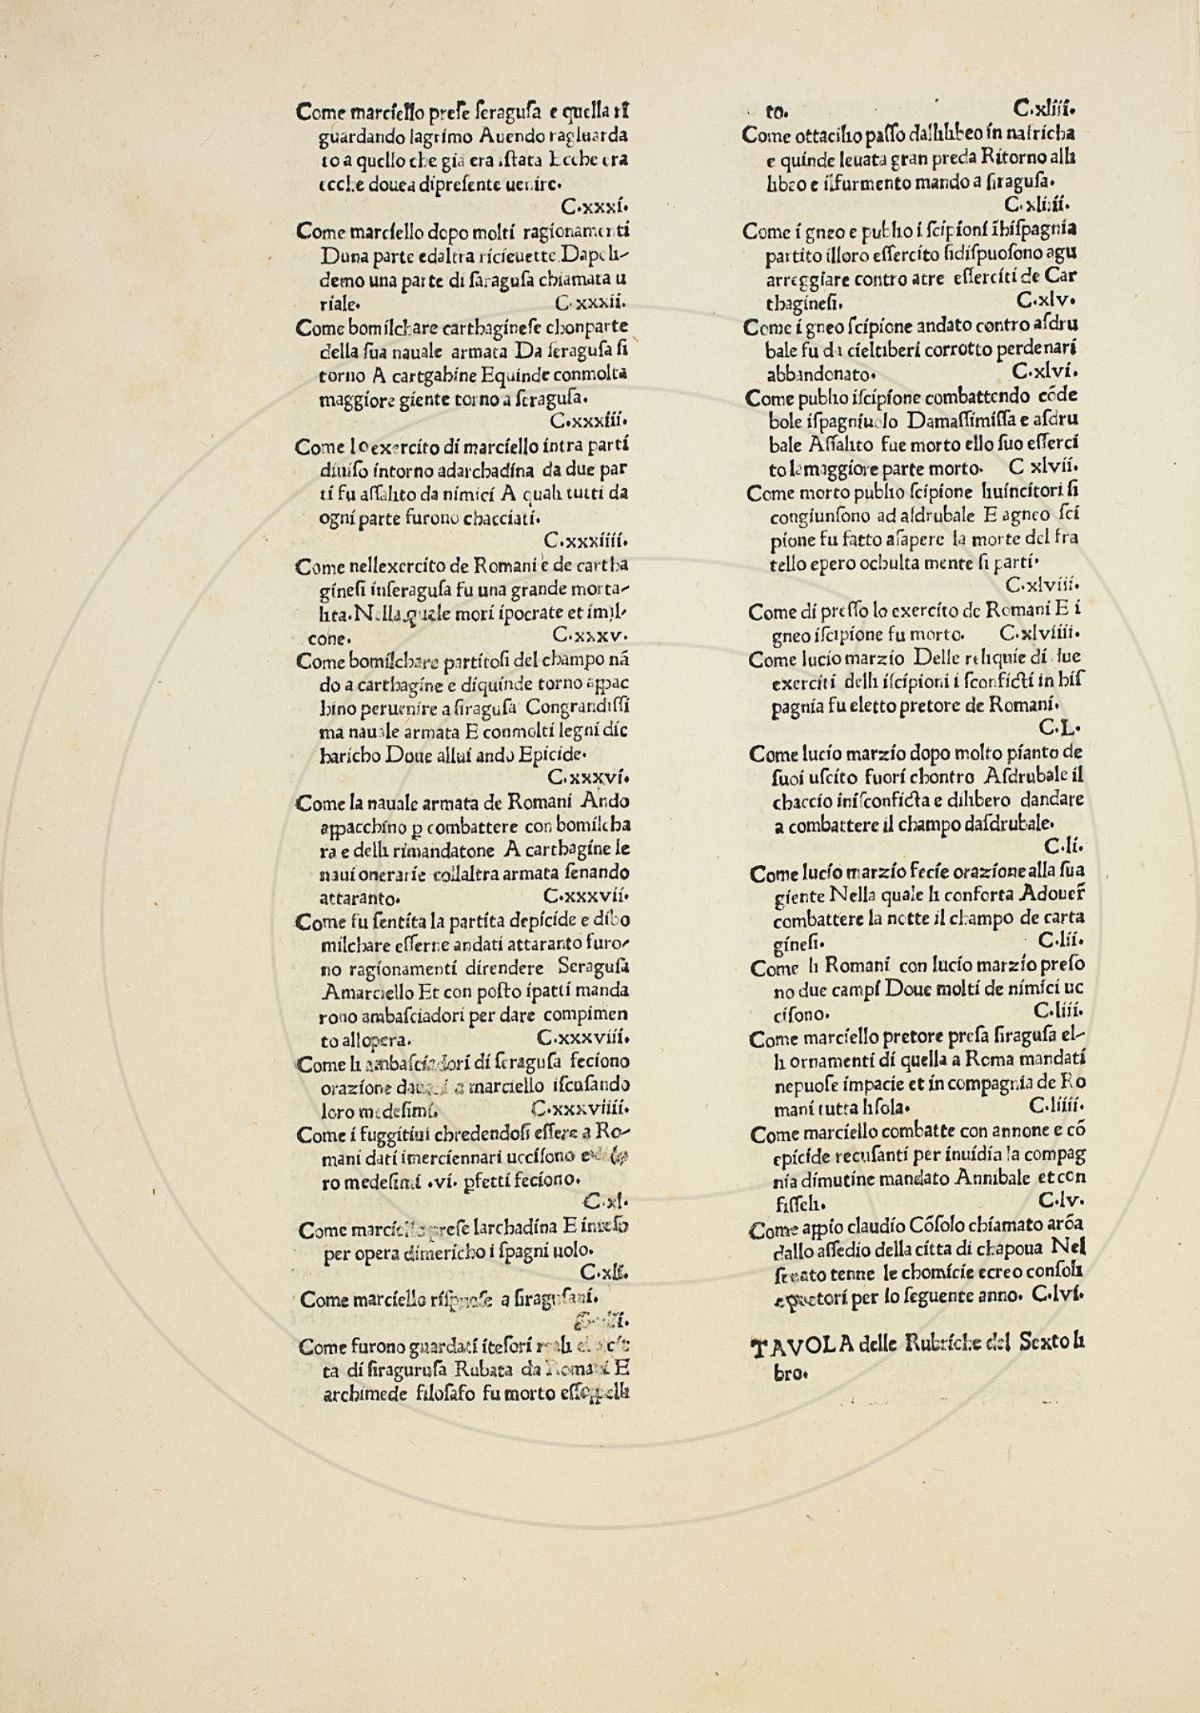 Come marciello prese seragusa e quella ri
guardando lagrimo Auendo raguarda
to a quello che gia era istata Ecche era
ecche douea dipresente uenire.
C.xxxi.
Come marciello dopo molti ragionamenti
Duna parte edaltra riceuette Dapoli-
demo una parte di saragusa chiamata u
riale. C.xxxii.
Come bomilchare carthaginese chonparte
della sua nauale armata Da seragusa si
torno A cartgahine Equinde conmolta
maggiore giente torno a seragusa.
C.xxxiii.
Come lo exercito di marciello intra parti
diuiso intorno adarchadina da due par
ti fu assalito da nimici A quali tutti da
ogni parte furono chacciati.
C.xxxiiii.
Come nellexercito de Romani e de cartha
ginesi inseragusa fu una grande morta-
lita. Nella quale mori ipocrate et imil-
cone. C.xxxv.
Come bomilchare partitosi del champo nã
do a carthagine e diquinde torno appac
hino peruenire a siragusa Congrandissi
ma nauale armata E conmolti legni dic
haricho Doue allui ando Epicide.
C.xxxvi.
Come la nauale armata de Romani Ando
appacchino ꝑ combattere con bomilcha
ra e delli rimandatone A carthagine le
naui onerarie collaltra armata senando
attaranto. C.xxxvii.
Come fu sentita la partita depicide e dibo
milchare esserne andati attaranto furo-
no ragionamenti direndere Seragusa
Amarciello Et con posto ipatti manda
rono ambasciadori per dare compimen
to allopera. C.xxxviii.
Come li ambasciadori di seragusa feciono
orazione dauanti a marciello iscusando
loro medesimi. C.xxxviiii.
Come i fuggitiui chredendosi essere a Ro-
mani dati imerciennari uccisono
ro medesimi .vi. ꝑfetti feciono.
C.xl.
Come marciello prese larchadina E inteso
per opera dimericho i spagni uolo.
C.xli.
Come marciello rispuose a siragusani.
Come furono guardati itesori reali
ta di siragurusa Rubata da Romani E
archimede filosafo fu morto esseppelli
to. C.xliii.
Come ottacilio passo dallilibeo in nafricha
e quinde leuata gran preda Ritorno alli
libeo e ilfurmento mando a siragusa.
C.xliiii.
Come i gneo e publio i scipioni ĩhispagnia
partito illoro essercito sidispuosono agu
arreggiare contro atre esserciti de Car
thaginesi. C.xlv.
Come i gneo scipione andato contro asdru
bale fu da cieltiberi corrotto perdenari
abbandonato. C.xlvi.
Come publio iscipione combattendo cõde
bole ispagniuolo Damassimissa e asdru
bale Assalito fue morto ello suo esserci
to lemaggiore parte morto. C xlvii.
Come morto publio scipione liuincitori si
congiunsono ad asdrubale E agneo sci
pione fu fatto asapere la morte del fra
tello epero ochulta mente si parti.
C.xlviii.
Come di presso lo exercito de Romani E i
gneo iscipione fu morto. C.xlviiii.
Come lucio marzio Delle reliquie di due
exerciti delli iscipioni i sconficti in his
pagnia fu eletto pretore de Romani.
C.L.
Come lucio marzio dopo molto pianto de
suoi uscito fuori chontro Asdrubale il
chaccio inisconficta e dilibero dandare
a combattere il champo dasdrubale.
C.li.
Come lucio marzio fecie orazione alla sua
giente Nella quale li conforta Adouer̃
combattere la notte il champo de carta
ginesi. C.lii.
Come li Romani con lucio marzio preso
no due campi Doue molti de nimici uc
cisono. C.liii.
Come marciello pretore presa siragusa el-
li ornamenti di quella a Roma mandati
nepuose impacie et in compagnia de Ro
mani tutta lisola. C.liiii.
Come marciello combatte con annone e cõ
epicide recusanti per inuidia la compag
nia dimutine mandato Annibale et con
fisseli. C.lv.
Come appio claudio Cõsolo chiamato arõa
dallo assedio della citta di chapoua Nel
senato tenne le chomicie ecreo consoli
epretori per lo seguente anno. C.lvi.
TAVOLA delle Rubriche del Sexto li
bro.